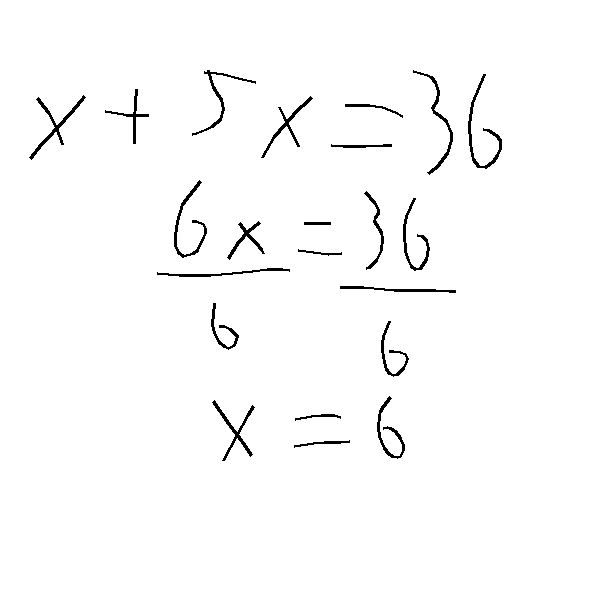 x + 5x = 36
6x = 36
6 6
x = 6